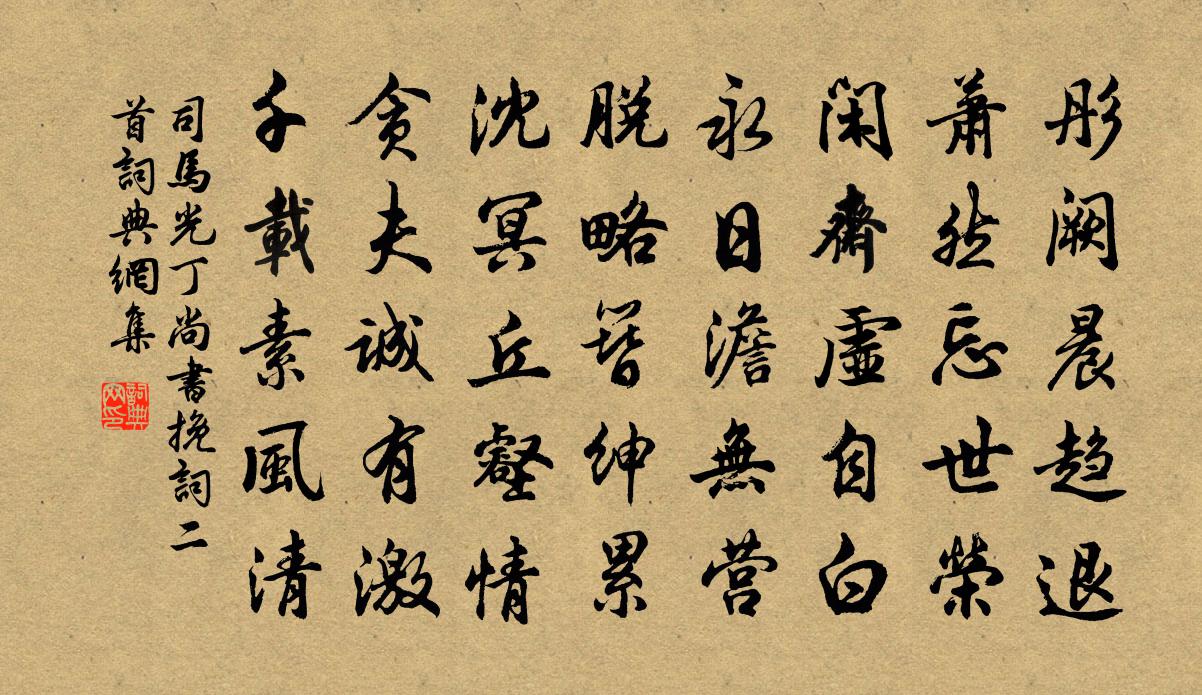 彤闕晨趨退
蕭然忘世榮
閑齋虛自白
永日澹無營
脫略簪紳累
沈冥丘壑情
貪夫誠有激
千載素風清
司馬光丁尚書挽詞二
首詞典網集
詞典网印